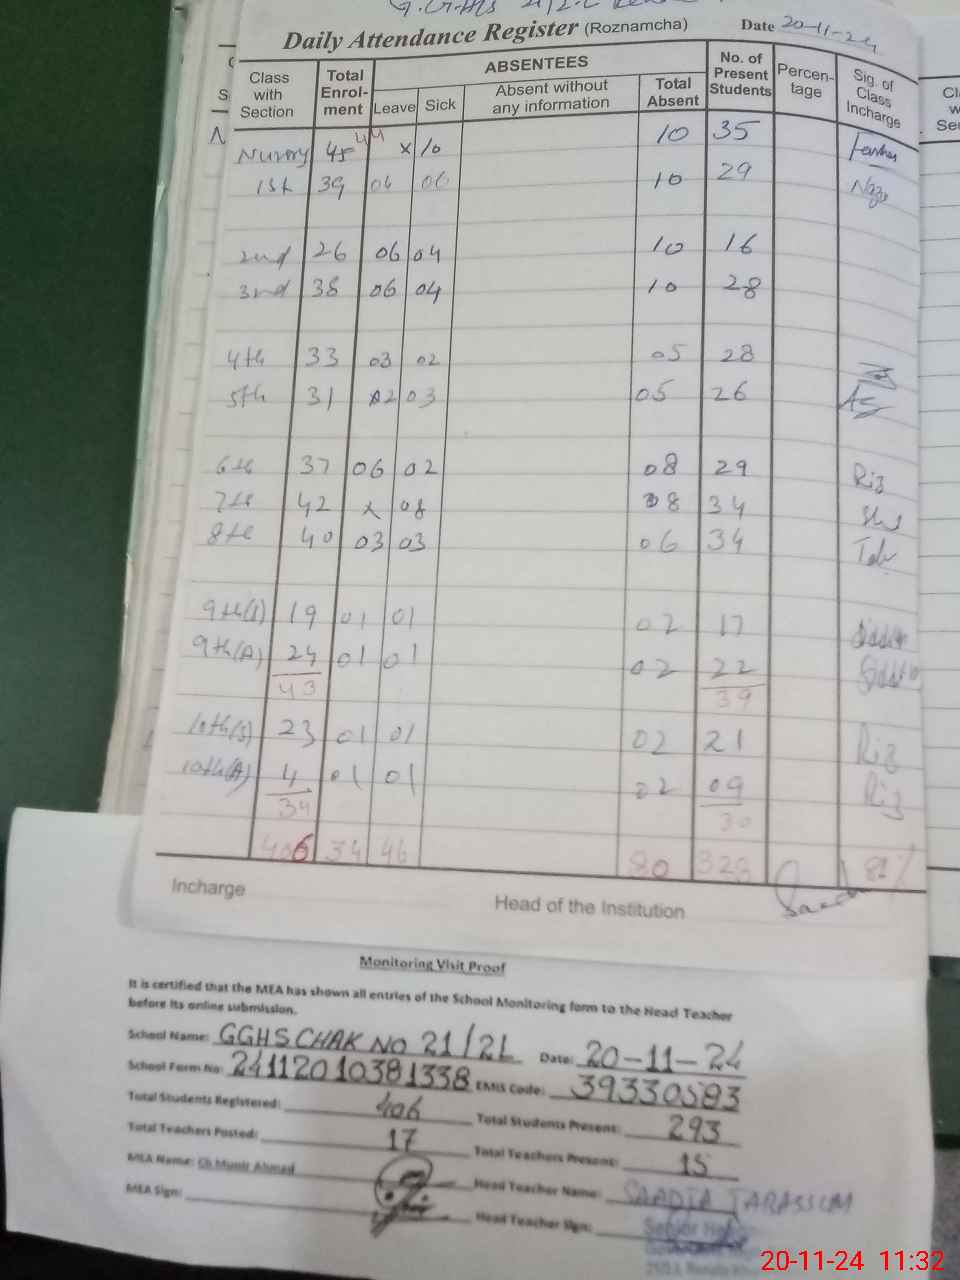 Daily Attendance Register (Roznamcha) Date 20-11-24
Class with Section Total Enrol-ment ABSENTEES Leave Sick Absent without any information Total Absent No. of Present Students Percen-tage Sig. of Class Incharge
Nursery 45 44 x 10 10 35
1st 39 04 06 10 29
2nd 26 06 04 10 16
3rd 38 06 04 10 28
4th 33 03 02 05 28
5th 31 02 03 05 26
6th 37 06 02 08 29 Riz
7th 42 x 08 08 34
8th 40 03 03 06 34
9th(S) 19 01 01 02 17
9th(A) 24 01 01 02 22
43 39
10th(S) 23 01 01 02 21 Riz
10th(A) 4 01 01 02 09 Riz
34 30
406 34 46 80 323 82%
Incharge Head of the Institution
Monitoring Visit Proof
It is certified that the MEA has shown all entries of the School Monitoring form to the Head Teacher
before its online submission.
School Name: GGHS CHAK NO 21/2L Date: 20-11-24
School Form No: 24112010381338 EMIS Code: 39330583
Total Students Registered: 406 Total Students Present: 293
Total Teachers Posted: 17 Total Teachers Present: 15
MEA Name: Ch Munir Ahmad Head Teacher Name: SAADIA TARASSUM
MEA Sign: Head Teacher Sign:
20-11-24 11:32